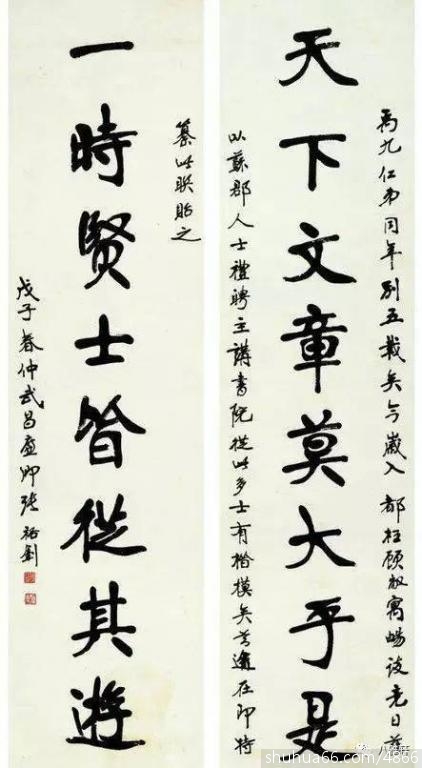 禹九仁弟同年別五載矣今歲入都枉顧敝寓暢談竟日茲
天下文章莫大乎是
以蘇郡人士禮聘主講書院從此多士有楷模矣首途在即特
纂此聯貽之
一時賢士皆從其遊
戊子春仲武昌愚卿張裕釗
shuhua66.com/4866